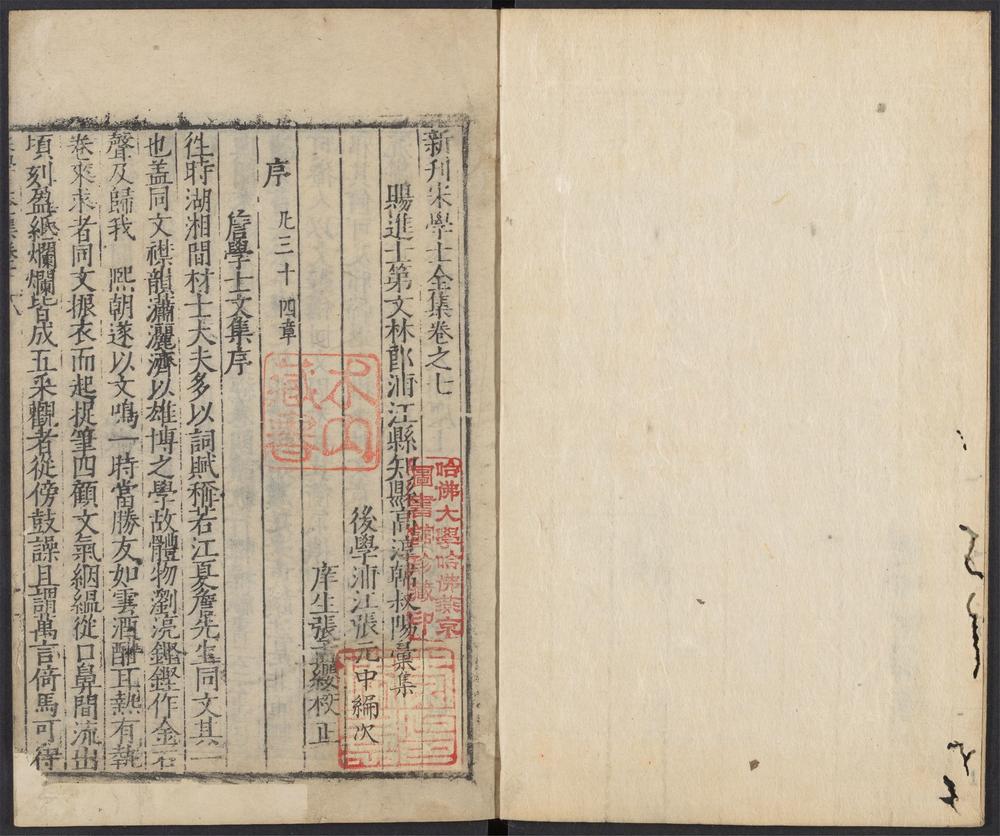 新刊宋學士全集卷之七
賜進士第文林郎浦江縣知縣高淳韓叔陽彙集
後學浦江張元中編次
庠生張孟縵校正
序 凡三十四章
詹學士文集序
徃時湖湘間材士大夫多以詞賦稱若江夏詹先生同文其一
也盖同文襟韻瀟灑濟以雄博之學故體物瀏湸鏗鏗作金石
聲及歸我 熙朝遂以文鳴一時當勝友如雲酒酣耳熱有執
卷來求者同文振衣而起捉筆四顧文氣絪縕從口鼻間流出
頃刻盈紙爛爛皆成五采觀者從傍鼓譟且謂萬言倚馬可待
哈佛大學哈佛燕京
圖書館珍藏印
不山
藏書